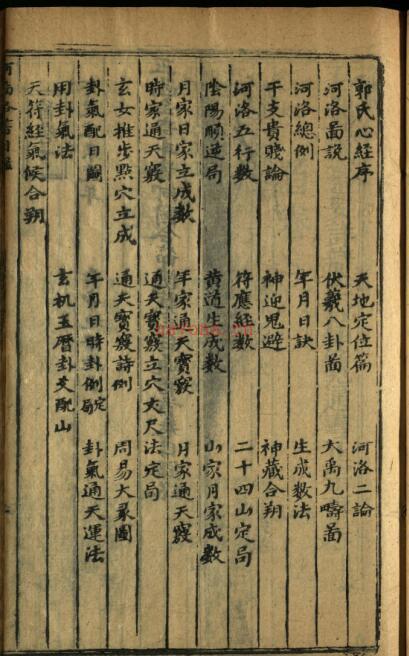 郭氏心經序 天地定位篇 河洛二論
河洛啚説 伏羲八卦啚 大禹九疇啚
河洛總例 年月日訣 生成數法
干支貴賤論 神迎鬼避 神藏合朔
河洛五行數 符應經數 二十四山定局
陰陽順逆局 黄道生成數 山家月家成數
月家日家立成數 年家通天竅 月家通天竅
時家通天竅 通天寳竅立穴丈尺法定局
玄女推步㸃穴立成 通天寳竅詩例 周易大象圖
卦氣配日圖 年月日時卦例定局 卦氣通天運法
用卦氣法 玄机玉曆卦爻配山
天符經氣候合朔